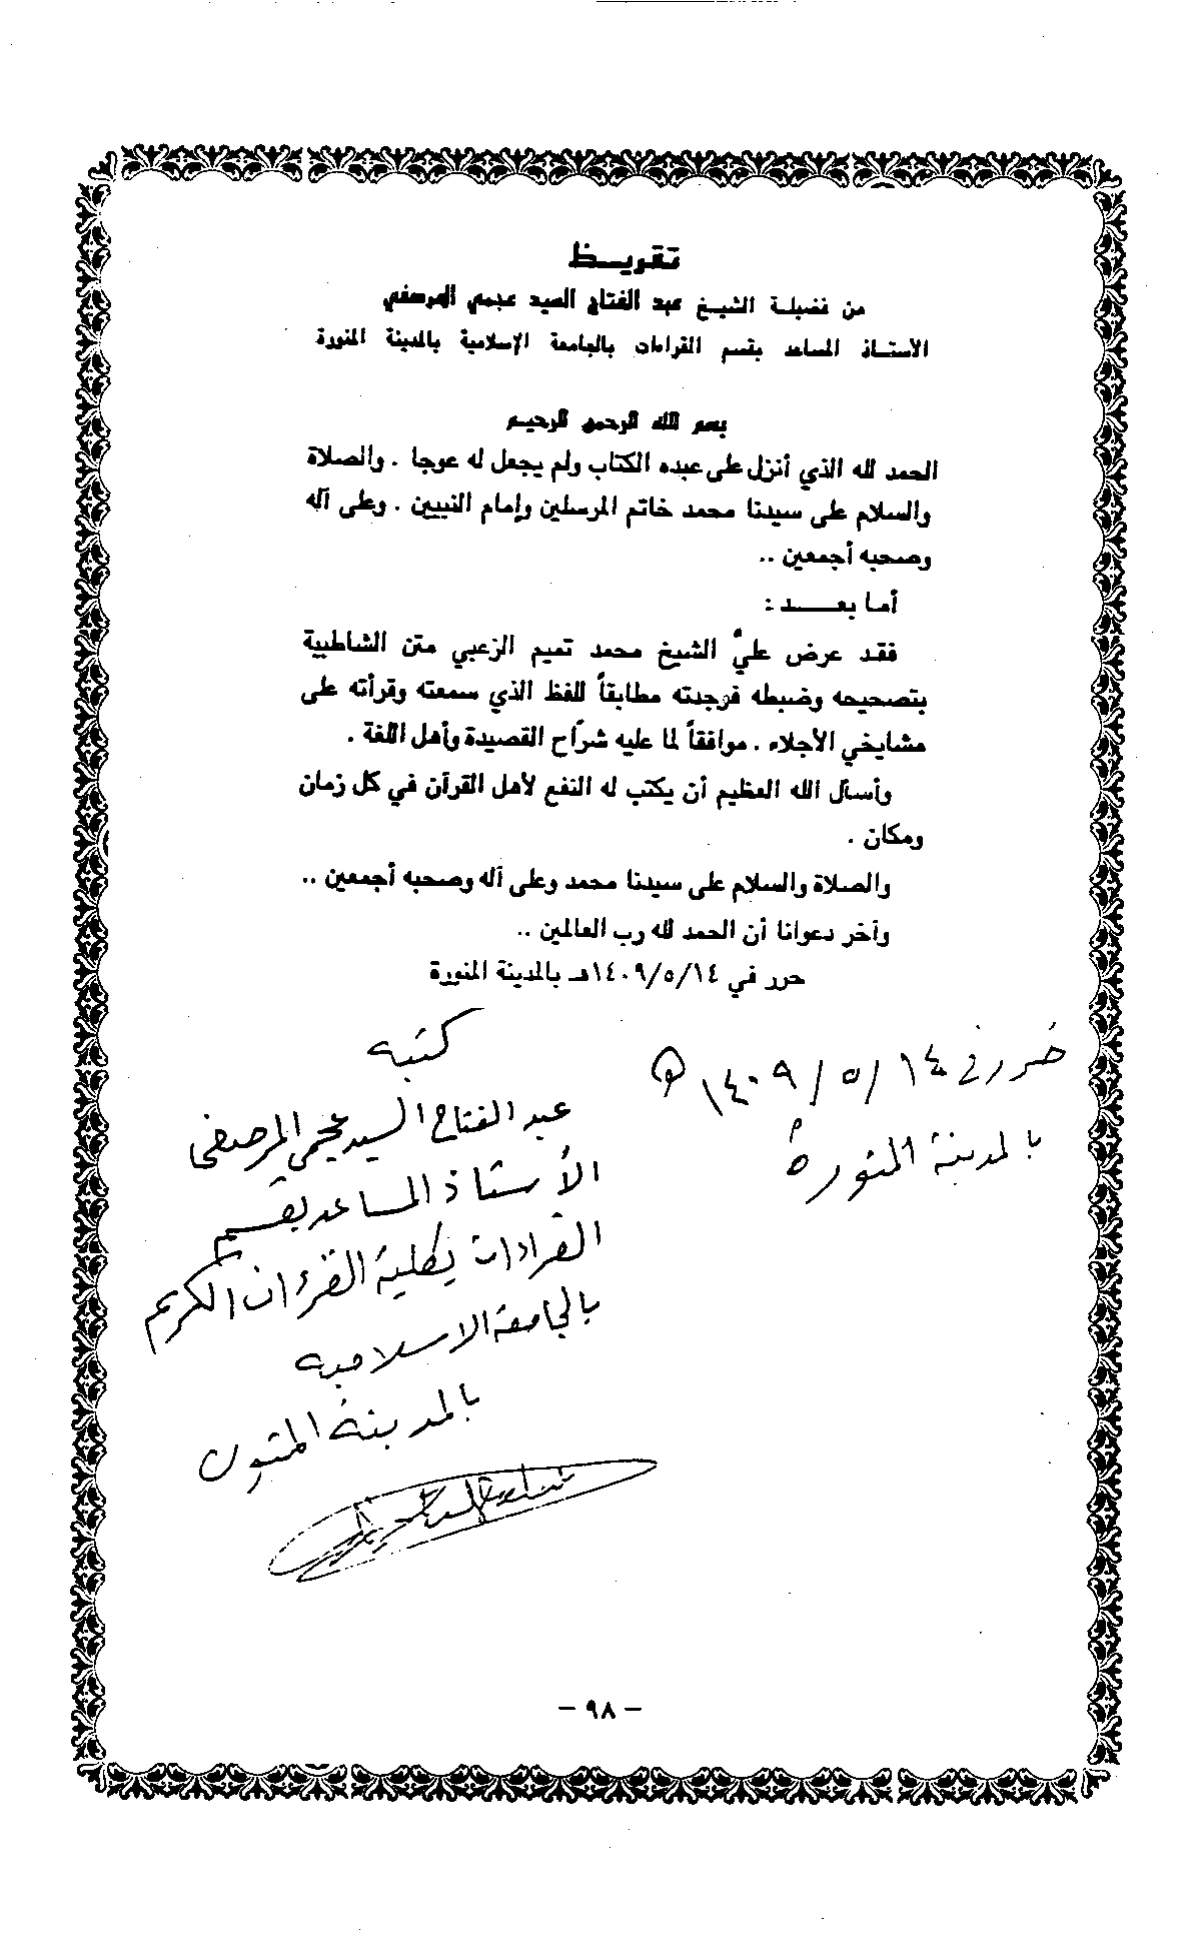 تقريــظ
من فضيلة الشيخ عبد الفتاح السيد عجمي المرصفي
الأستاذ المساعد بقسم القراءات بالجامعة الإسلامية بالمدينة المنورة
بسم الله الرحمن الرحيم
الحمد لله الذي أنزل على عبده الكتاب ولم يجعل له عوجا . والصلاة
والسلام على سيدنا محمد خاتم المرسلين وإمام النبيين . وعلى آله
وصحبه أجمعين ..
أما بعــــد :
فقد عرض عليَّ الشيخ محمد تميم الزعبي متن الشاطبية
بتصحيحه وضبطه فوجدته مطابقاً للفظ الذي سمعته وقرأته على
مشايخي الأجلاء . موافقاً لما عليه شرّاح القصيدة وأهل اللغة .
وأسأل الله العظيم أن يكتب له النفع لأهل القرآن في كل زمان
ومكان .
والصلاة والسلام على سيدنا محمد وعلى آله وصحبه أجمعين ..
وآخر دعوانا أن الحمد لله رب العالمين ..
حرر في ١٤٠٩/٥/١٤هـ بالمدينة المنورة
حرر في ١٤٠٩/٥/١٤ هـ
بالمدينة المنورة
كتبه
عبد الفتاح السيد عجمي المرصفي
الأستاذ المساعد بقسم
القراءات بكلية القرءان الكريم
بالجامعة الاسلامية
بالمدينة المنورة
– ٩٨ –